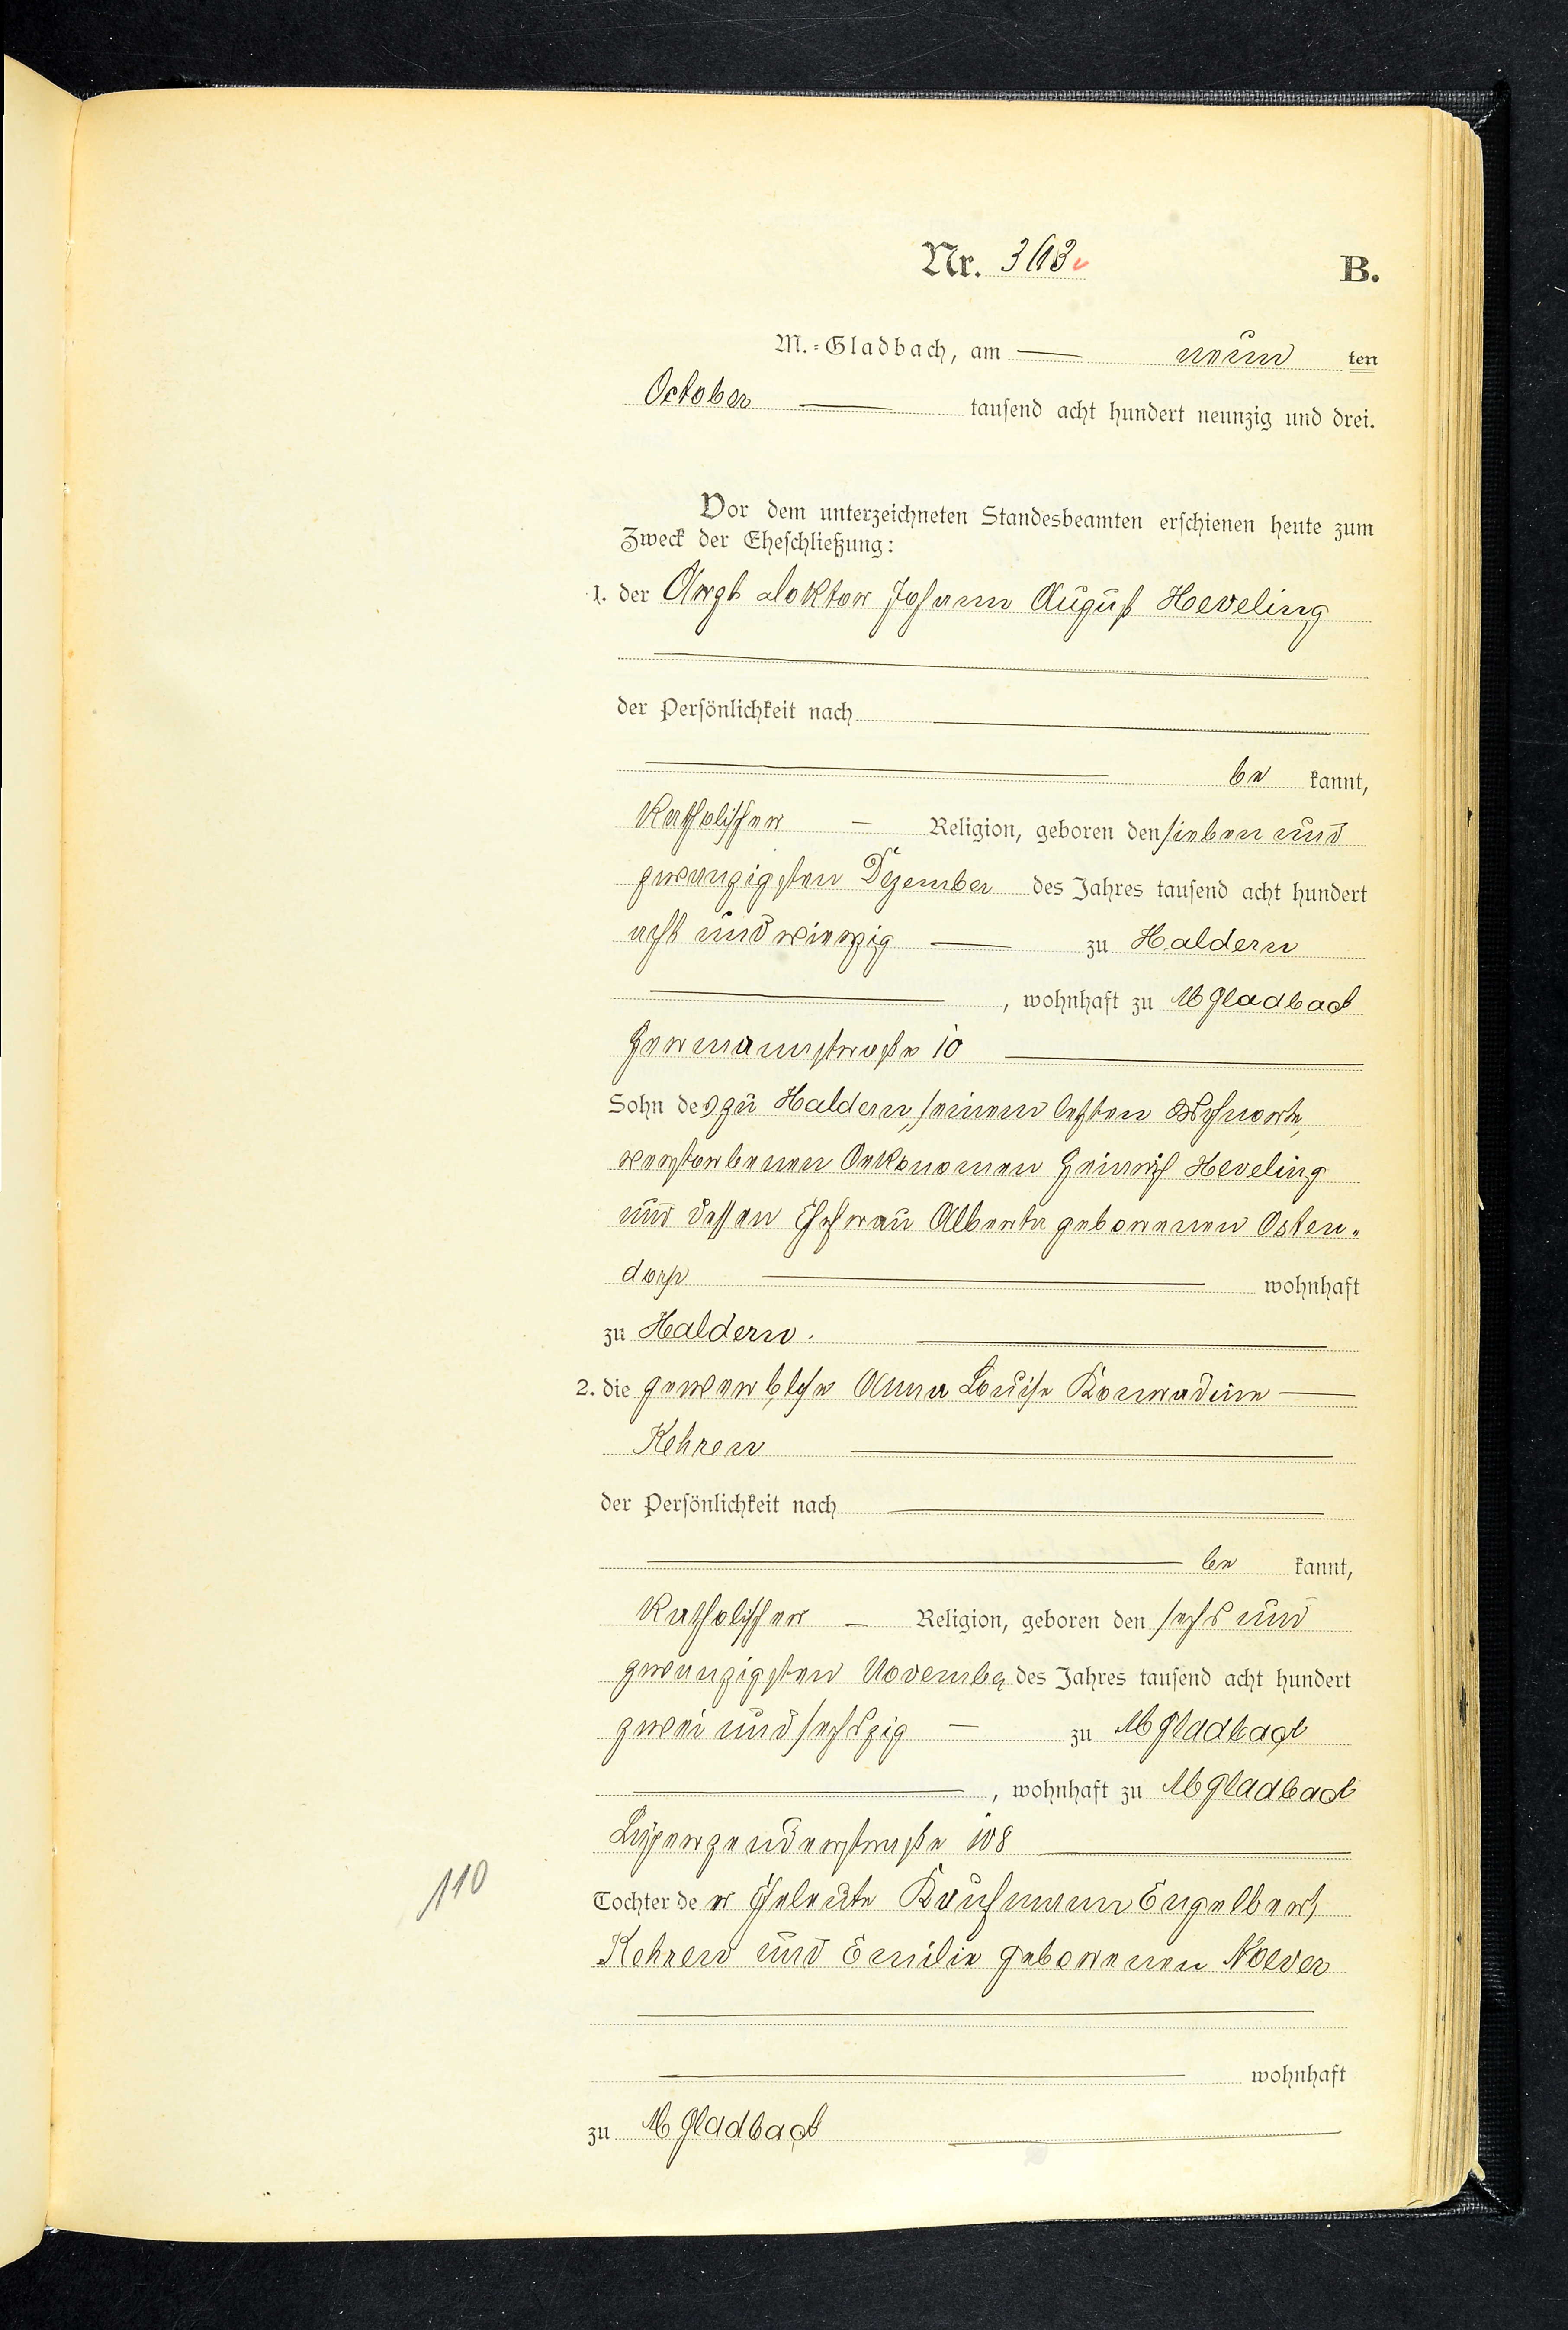 Nr. 363
B.
M.-Gladbach, am neun ten
October tausend acht hundert neunzig und drei.
Vor dem unterzeichneten Standesbeamten erschienen heute zum
Zweck der Eheschließung:
1. der Arzt Doktor Johann August Heveling
der Persönlichkeit nach
be kannt,
katholischer Religion, geboren den sieben und
zwanzigsten Dezember des Jahres tausend acht hundert
acht und vierzig zu Haldern
, wohnhaft zu MGladbach
Hermannstraße 10
Sohn des zu Haldern, seinem letzten Wohnorte,
verstorbenen Oekonomen Heinrich Heveling
und dessen Ehefrau Alberta geborenen Osten-
dorp wohnhaft
zu Haldern.
2. die gewerblose Anna Louise Konradine
Kehren
der Persönlichkeit nach
be kannt,
katholischer Religion, geboren den sechs und
zwanzigsten November des Jahres tausend acht hundert
zwei und sechszig zu MGladbach
, wohnhaft zu MGladbach
Lüpertzenderstraße 108
110
Tochter der Eheleute Kaufmann Engelbert
Kehren und Emilie geborenen Noever
wohnhaft
zu MGladbach